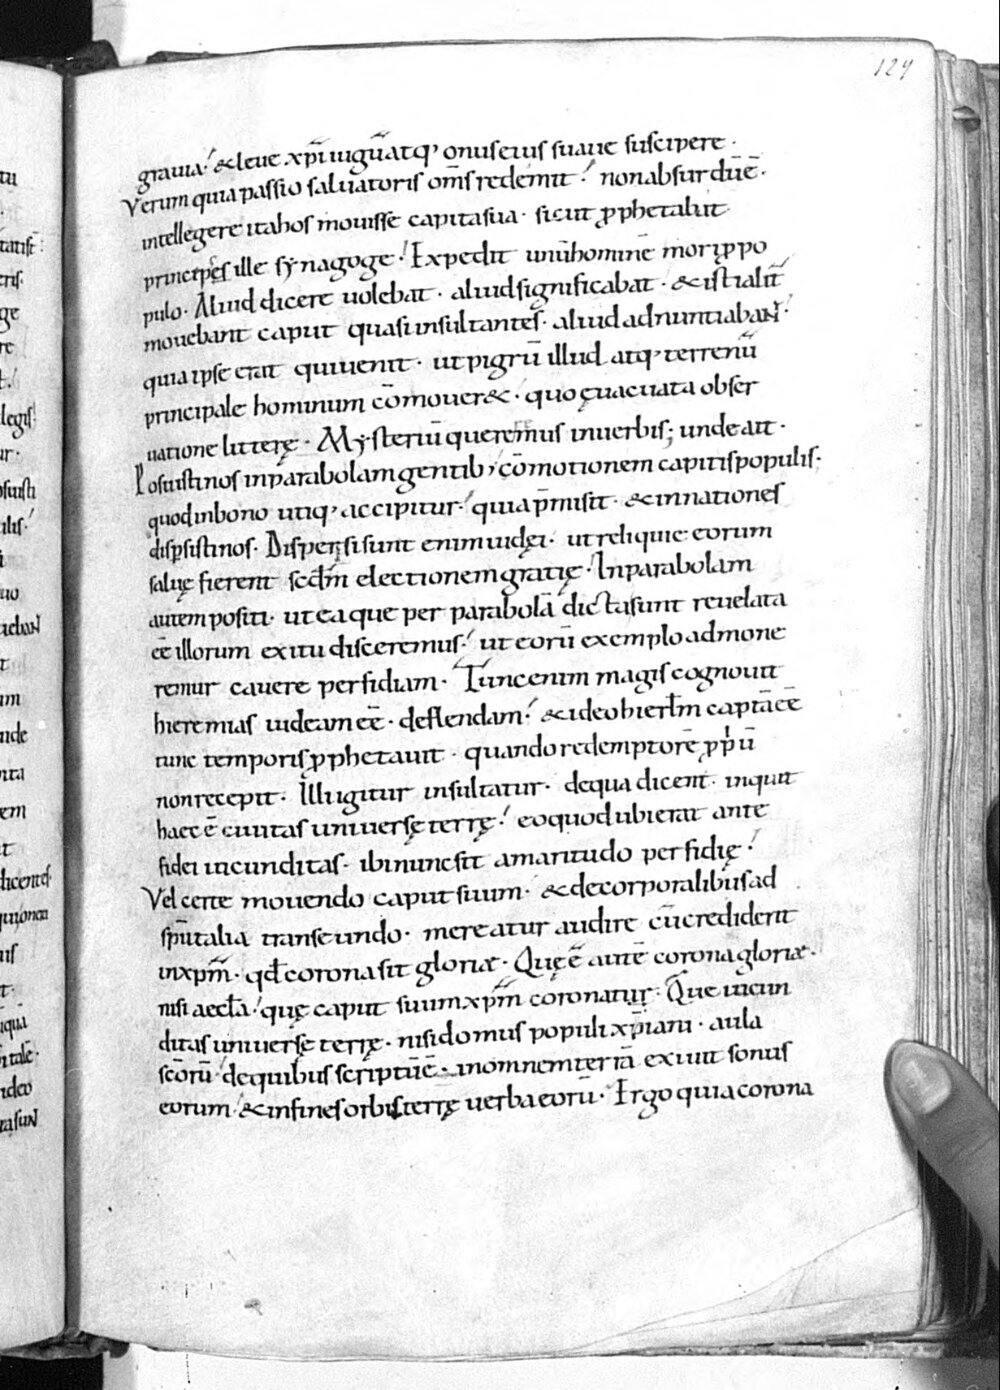 129
grauia! & leue xp̄i iugū atq; onus eius suaue suscipere ·
Verum quia passio saluatoris om̄s redemit! non absurdū ē ·
intellegere ita hos mouisse capita sua · sicut ꝓphetabat
princeps ille sẏnagoge! Expedit unū hominē mori p po
pulo · Aliud dicere uolebat · aliud significabat · & isti alit̄
mouebant caput quasi insultantes · aliud adnuntiabant!
quia ipse erat qui uenit · ut pigrū illud atq; terrenū
principale hominum cōmoueret · quo euacuata obser
uatione litterę · Mẏsteriū queremus in uerbis; unde ait ·
Posuisti nos in parabolam gentib; cōmotionem capitis populis;
quod in bono utiq; accipitur! quia p̄misit · & in nationes
disp̱sisti nos · Dispersi sunt enim iudęi · ut reliquie eorum
saluę fierent scd̄m electionem gratię · In parabolam
autem positi · ut ea que per parabolā dicta sunt reuelata
eē illorum exitu disceremus! ut eorū exemplo admone
remur cauere perfidiam · Tunc enim magis cognouit
hieremias iudeam eē · deflendam! & ideo hierłm captā eē
tunc temporis ꝓphetauit · quando redemptorē ꝓpriū
non recepit · Illi igitur insultatur · de qua dicent · inquit
haec ē ciuitas uniuersę terrę! eo quod ubi erat ante
fidei iucunditas · ibi nunc sit amaritudo perfidię!
Vel certe mouendo caput suum · & de corporalibus ad
sp̄italia transeundo · mereatur audire cū crediderit
in xp̄m · qđ corona sit gloriae · Quę ē autē corona gloriae ·
nisi aeccła! quę caput suum xp̄m coronatur · Que iucun
ditas uniuersę terrę · nisi domus populi xp̄iani · aula
sc̄orū! de quibus scriptū ē · in omnem terrā exiuit sonus
eorum · & in fines orbis terrę uerba eorū · Ergo quia corona